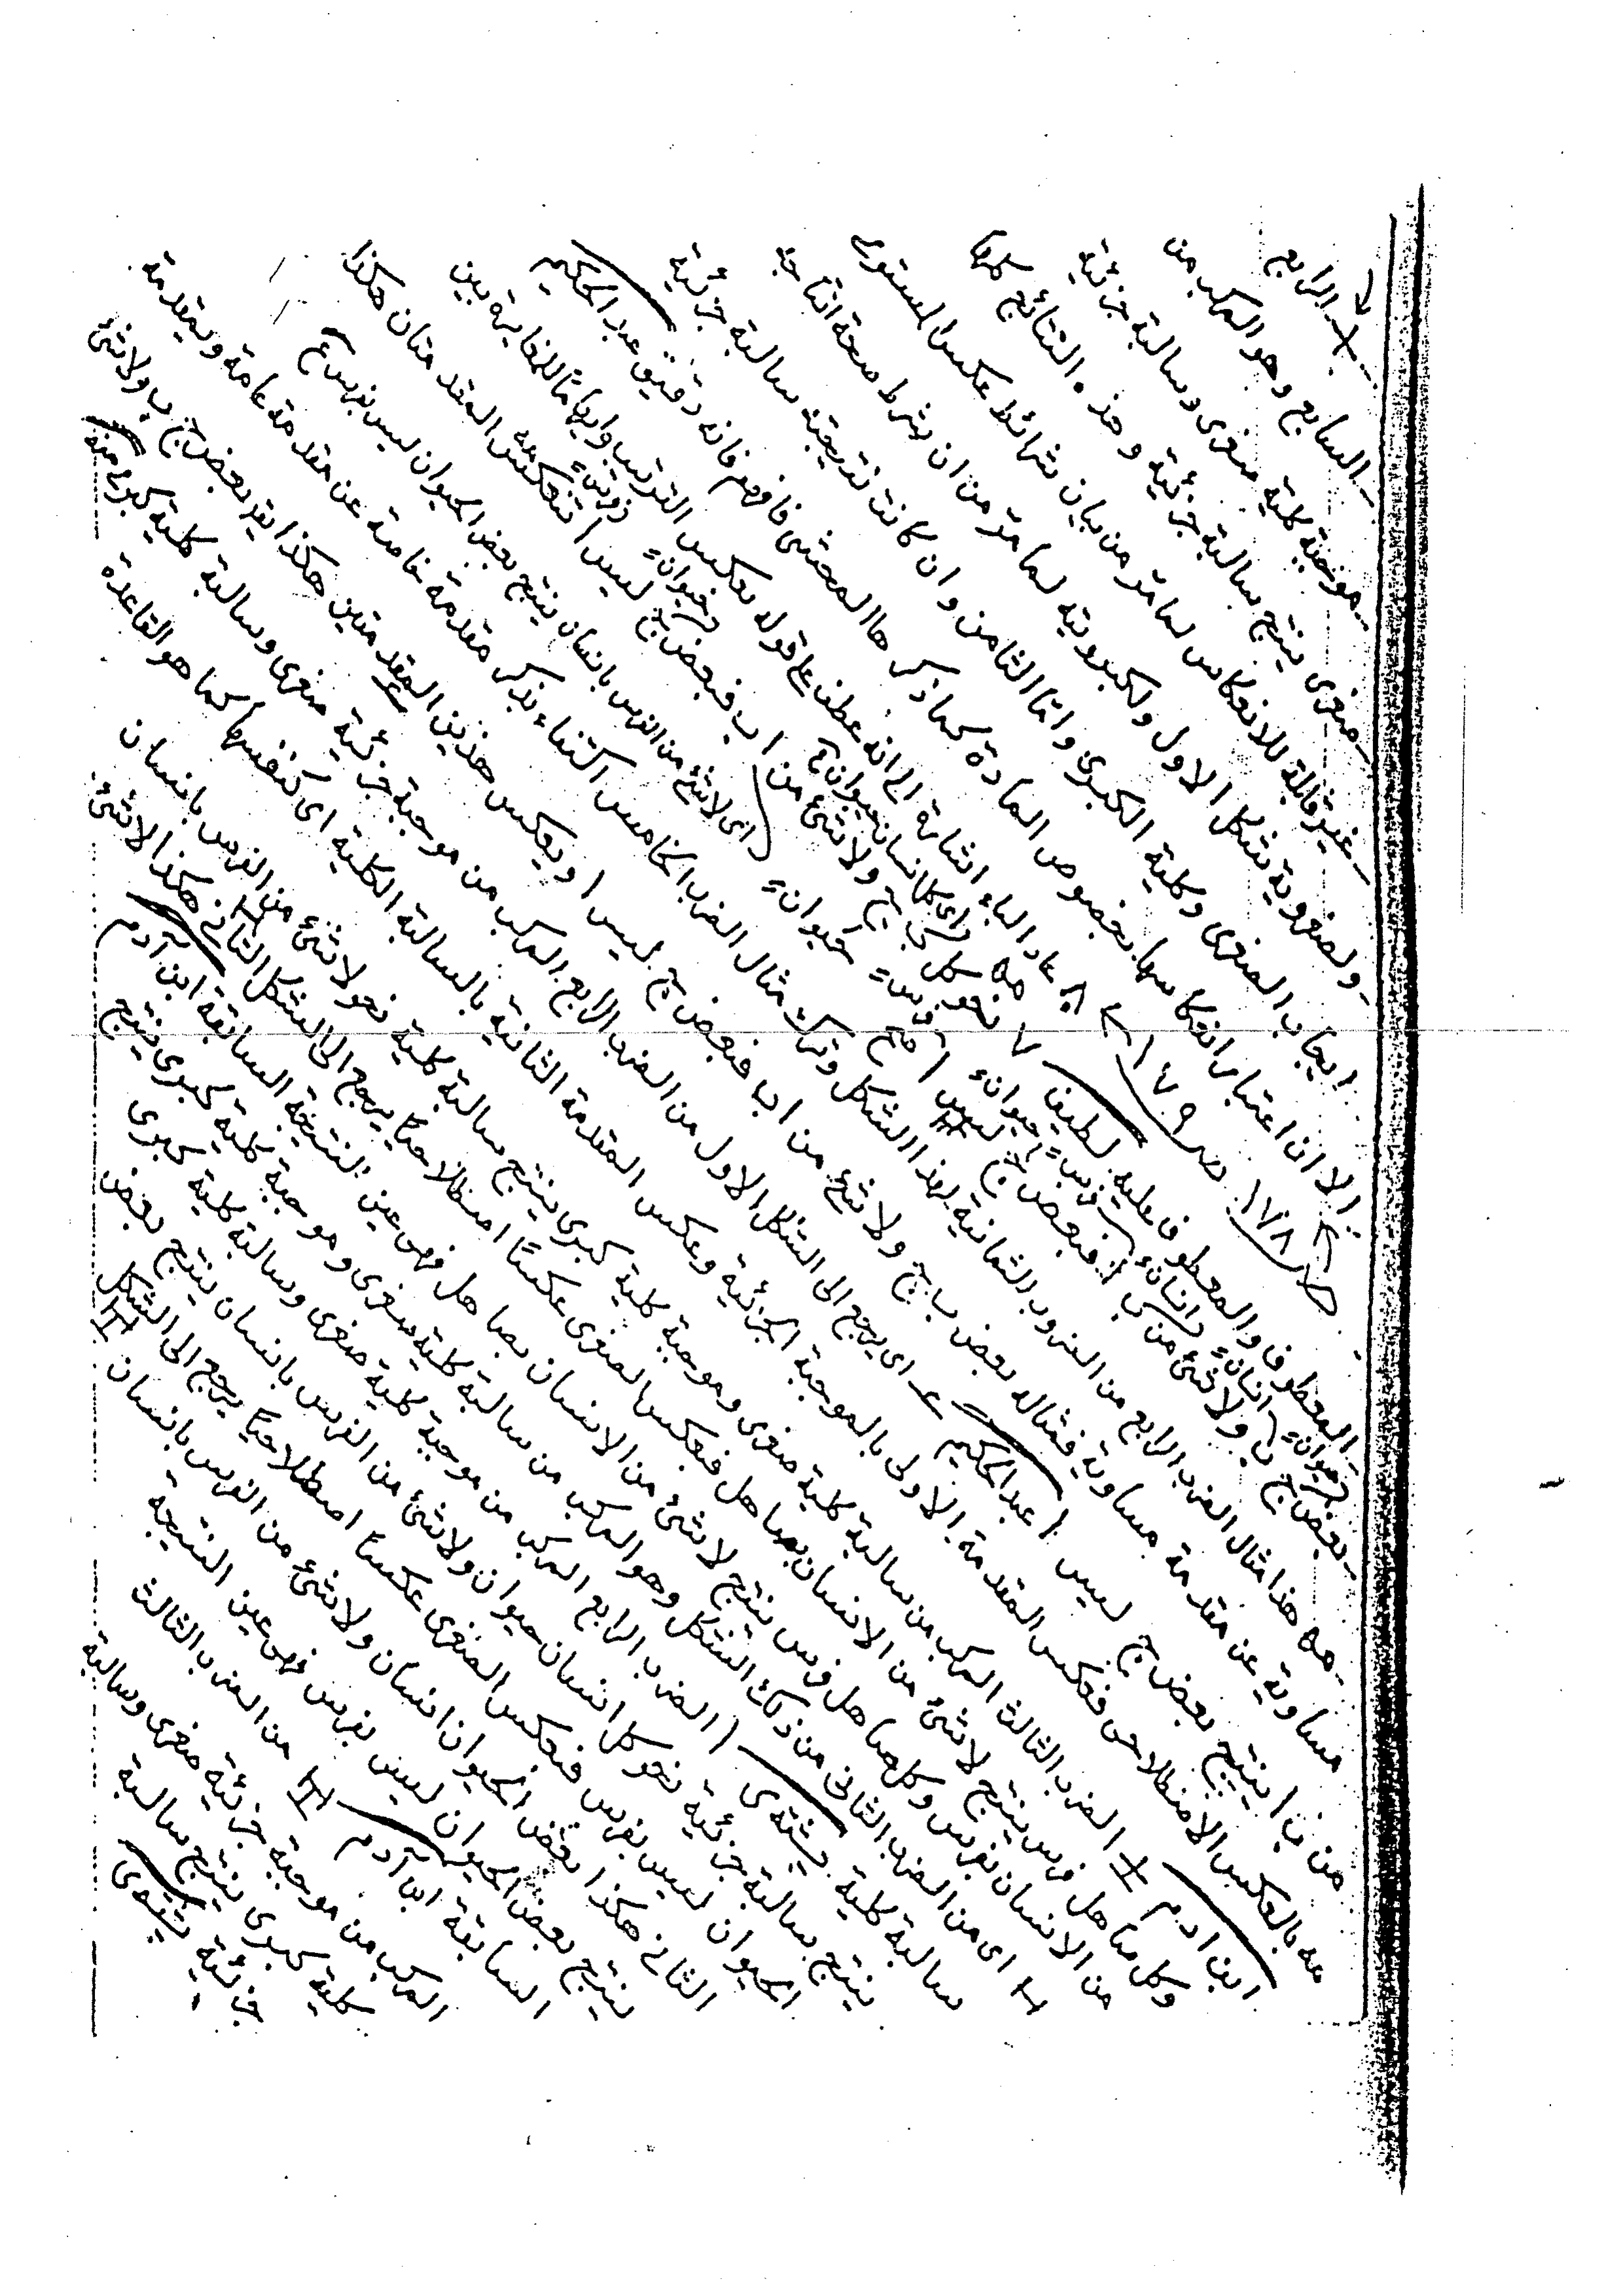 الرابع
السابع وهو المركب من
موجبة كلية صغرى وسالبة جزئية
صغرى ينتج سالبة جزئية وهذه النتائج كلها
غير قابلة للانعكاس لما مر من بيان شرائط عكس المستوى
ولصغروية شكل الاول ولكبروية لما مر من ان شرط صحة انتاجه
ايجاب الصغرى وكلية الكبرى واما الثامن وان كانت نتيجته سالبة جزئية
الا ان اعتبار انعكاسها بخصوص المادة كما ذكرها المحشى فافهم فانه دقيق عبد الحكيم
ص ١٧٨ ص ١٧٩ عاد الباء اشارة الى انه عطف على قوله بعكس الترتيب وايهاما للمغايرة بين
المعطوف والمعطوف عليه لطيف نحو كل ج ب ولا شئ من ا ب فبعض ج ليس ا تنعكس المقدمتان هكذا
بعض ج ب ولا شئ من ب ا فبعض ج ليس ا (اى لا شئ من الفرس بانسان ينتج بعض الحيوان ليس بفرس
هذا مثال الضرب الرابع من الضروب الثمانية لهذا الشكل وترك مثال الضرب الخامس اكتفاء بذكر مقدمة خاصة عن مقدمة عامة ومقدمة
مساوية عن مقدمة مساوية فمثاله بعض ب ج ولا شئ من ا ب فبعض ج ليس ا وبعكس هذين المقدمتين هكذا بعض ج ب ولا شئ
من ب ا ينتج بعض ج ليس ا عبد الحكيم اى يرجع الى الشكل الاول من الضرب الرابع المركب من موجبة جزئية صغرى وسالبة كلية كبرى منه
منه بالعكس الاصطلاحى فعكس المقدمة الاولى بالموجبة الجزئية وعكس المقدمة الثانية بالسالبة الكلية اى كنفسها كما هو القاعدة
ابن ادم الضرب الثالث المركب من سالبة كلية صغرى وموجبة كلية كبرى ينتج سالبة كلية نحو لا شئ من الفرس بانسان
وكل صاهل فرس ينتج لا شئ من الانسان بصاهل فبعكس الصغرى عكسا اصطلاحيا يرجع الى الشكل الثانى هكذا لا شئ
من الانسان بفرس وكل صاهل فرس ينتج لا شئ من الانسان بصاهل فهى عين النتيجة السابقة ابن آدم
اى من الضرب الثانى من ذلك الشكل وهو المركب من سالبة كلية صغرى وموجبة كلية كبرى ينتج
سالبة كلية يثتوى الضرب الرابع المركب من موجبة كلية صغرى وسالبة كلية كبرى
ينتج سالبة جزئية نحو كل انسان حيوان ولا شئ من الفرس بانسان ينتج بعض
الحيوان ليس بفرس فبعكس الصغرى عكسا اصطلاحيا يرجع الى الشكل
الثانى هكذا بعض الحيوان انسان ولا شئ من الفرس بانسان
ينتج بعض الحيوان ليس بفرس فهى عين النتيجة
السابقة ابن آدم من الضرب الثالث
المركب من موجبة جزئية صغرى وسالبة
كلية كبرى ينتج سالبة
جزئية يثتوى